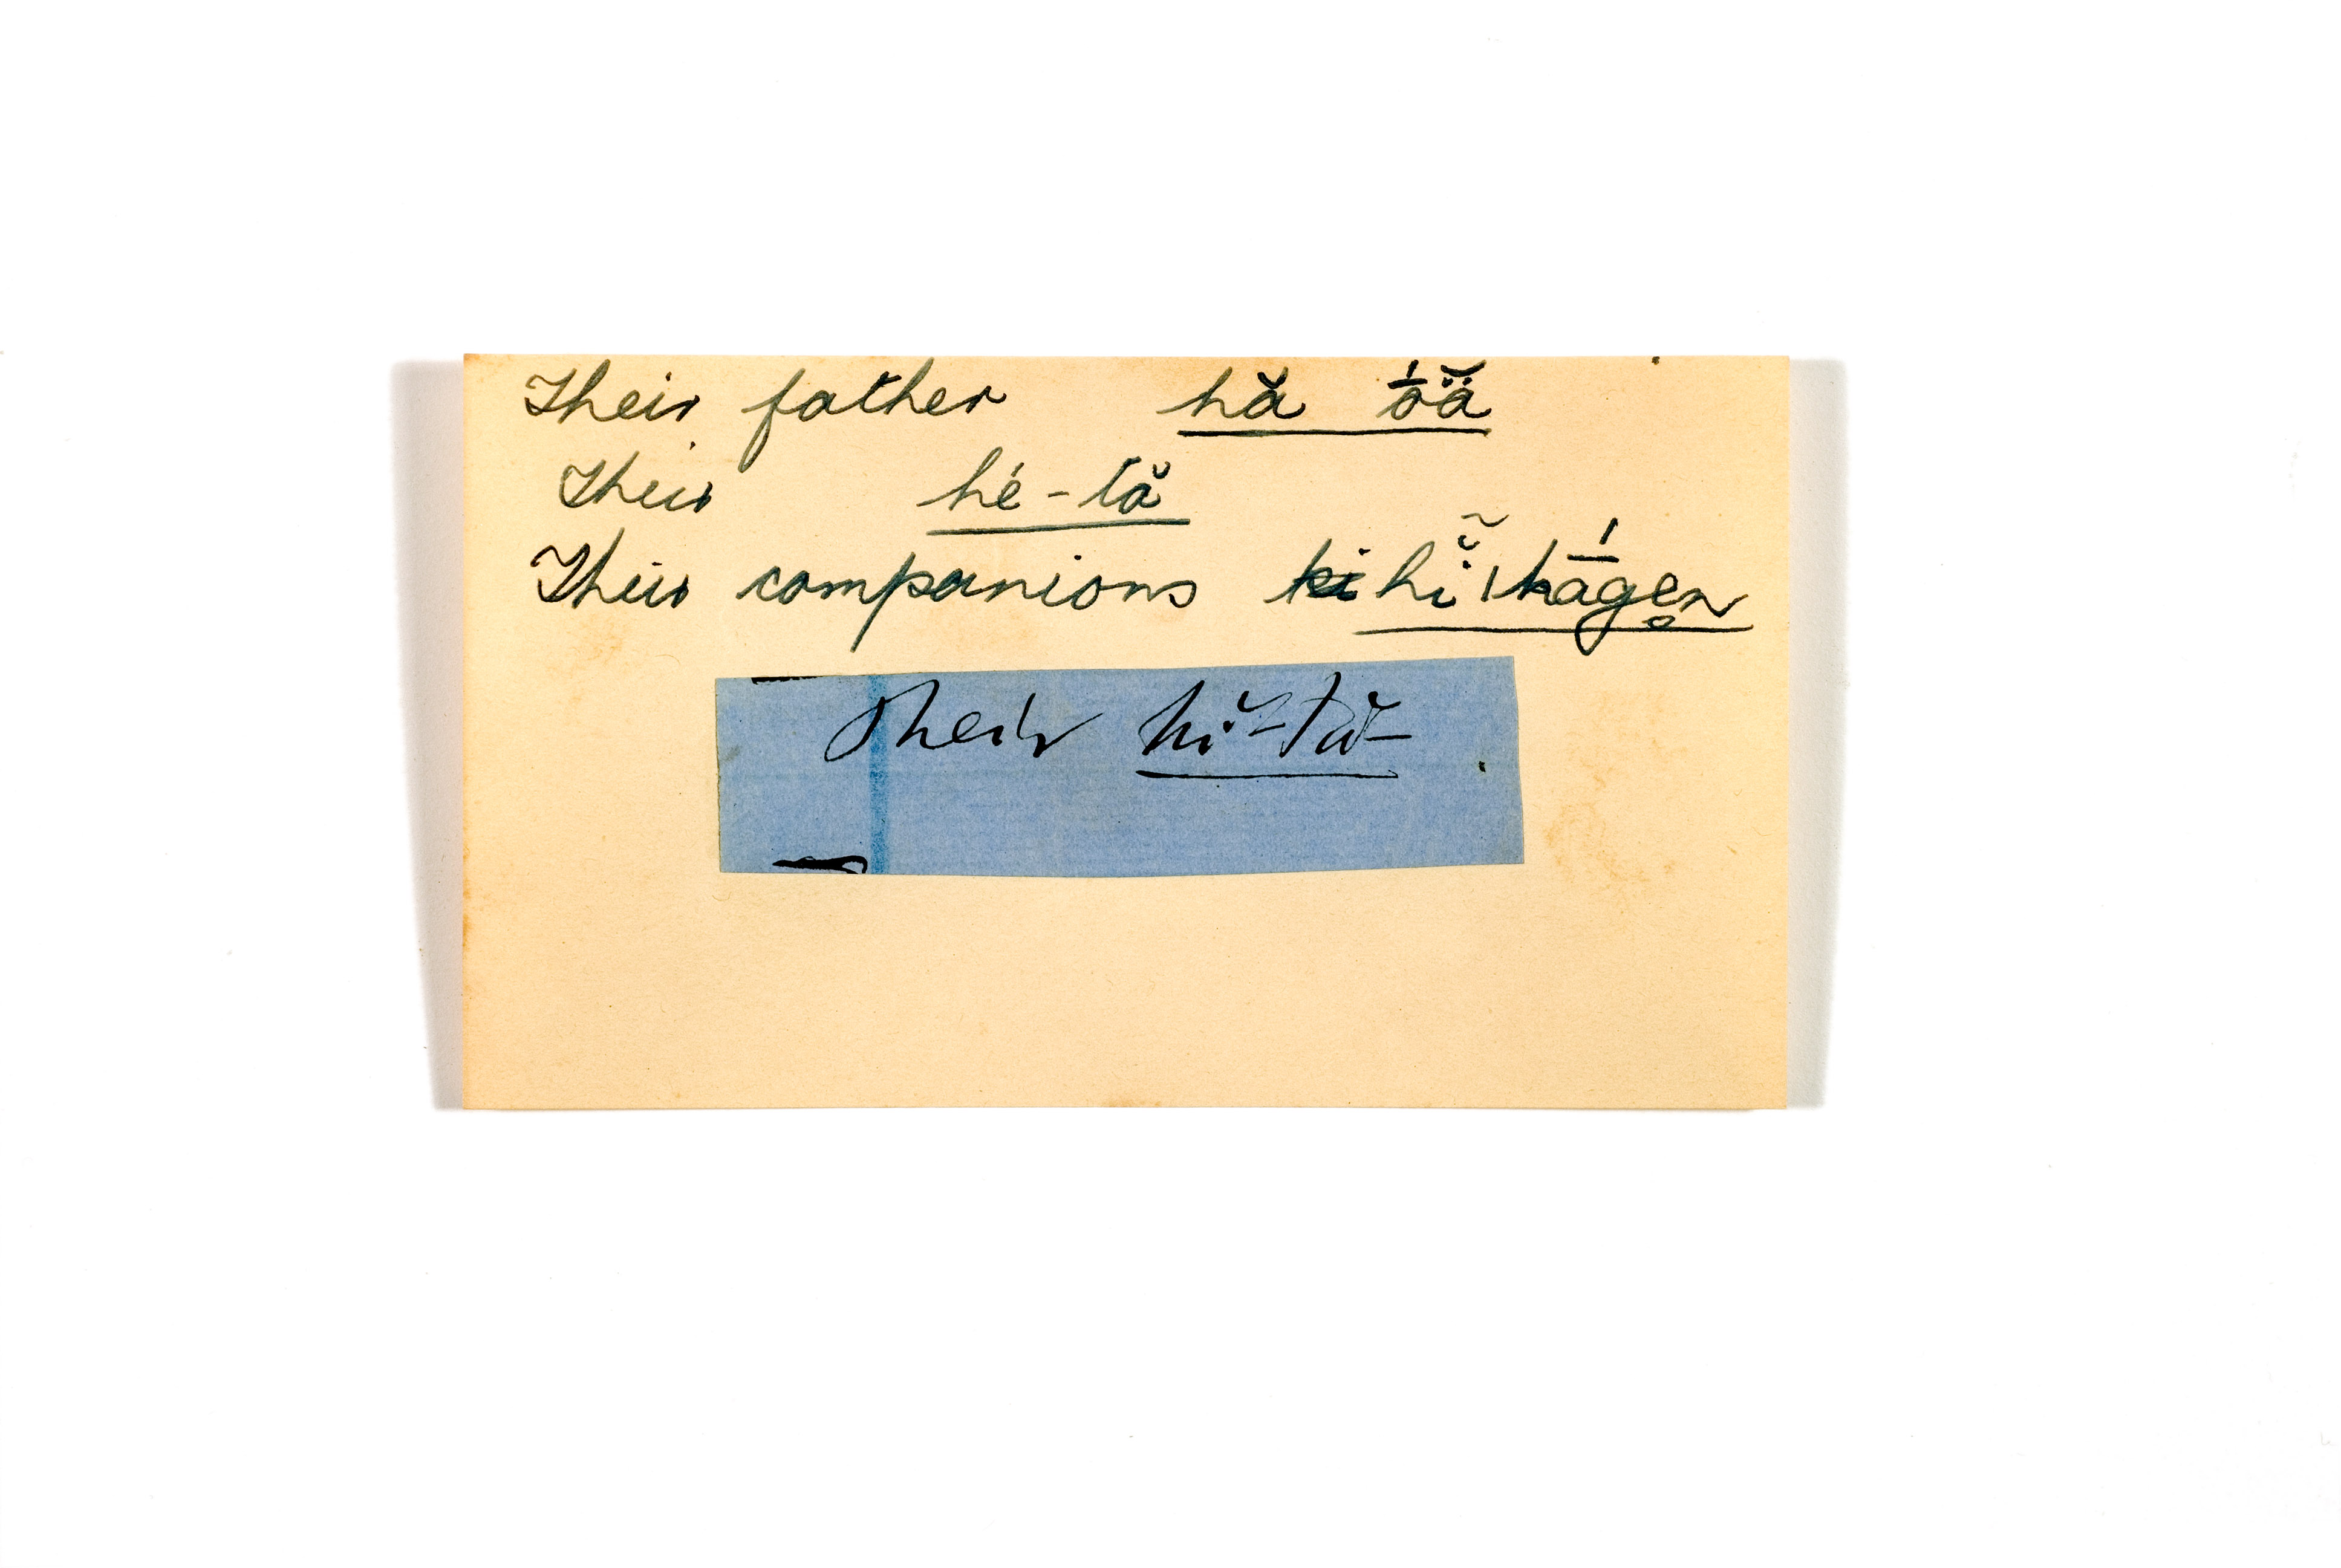 Their father hă ṓä̆
Their hé-tă
Their companions hĭ̃ kā́gen̥
Their hĭ-tă-